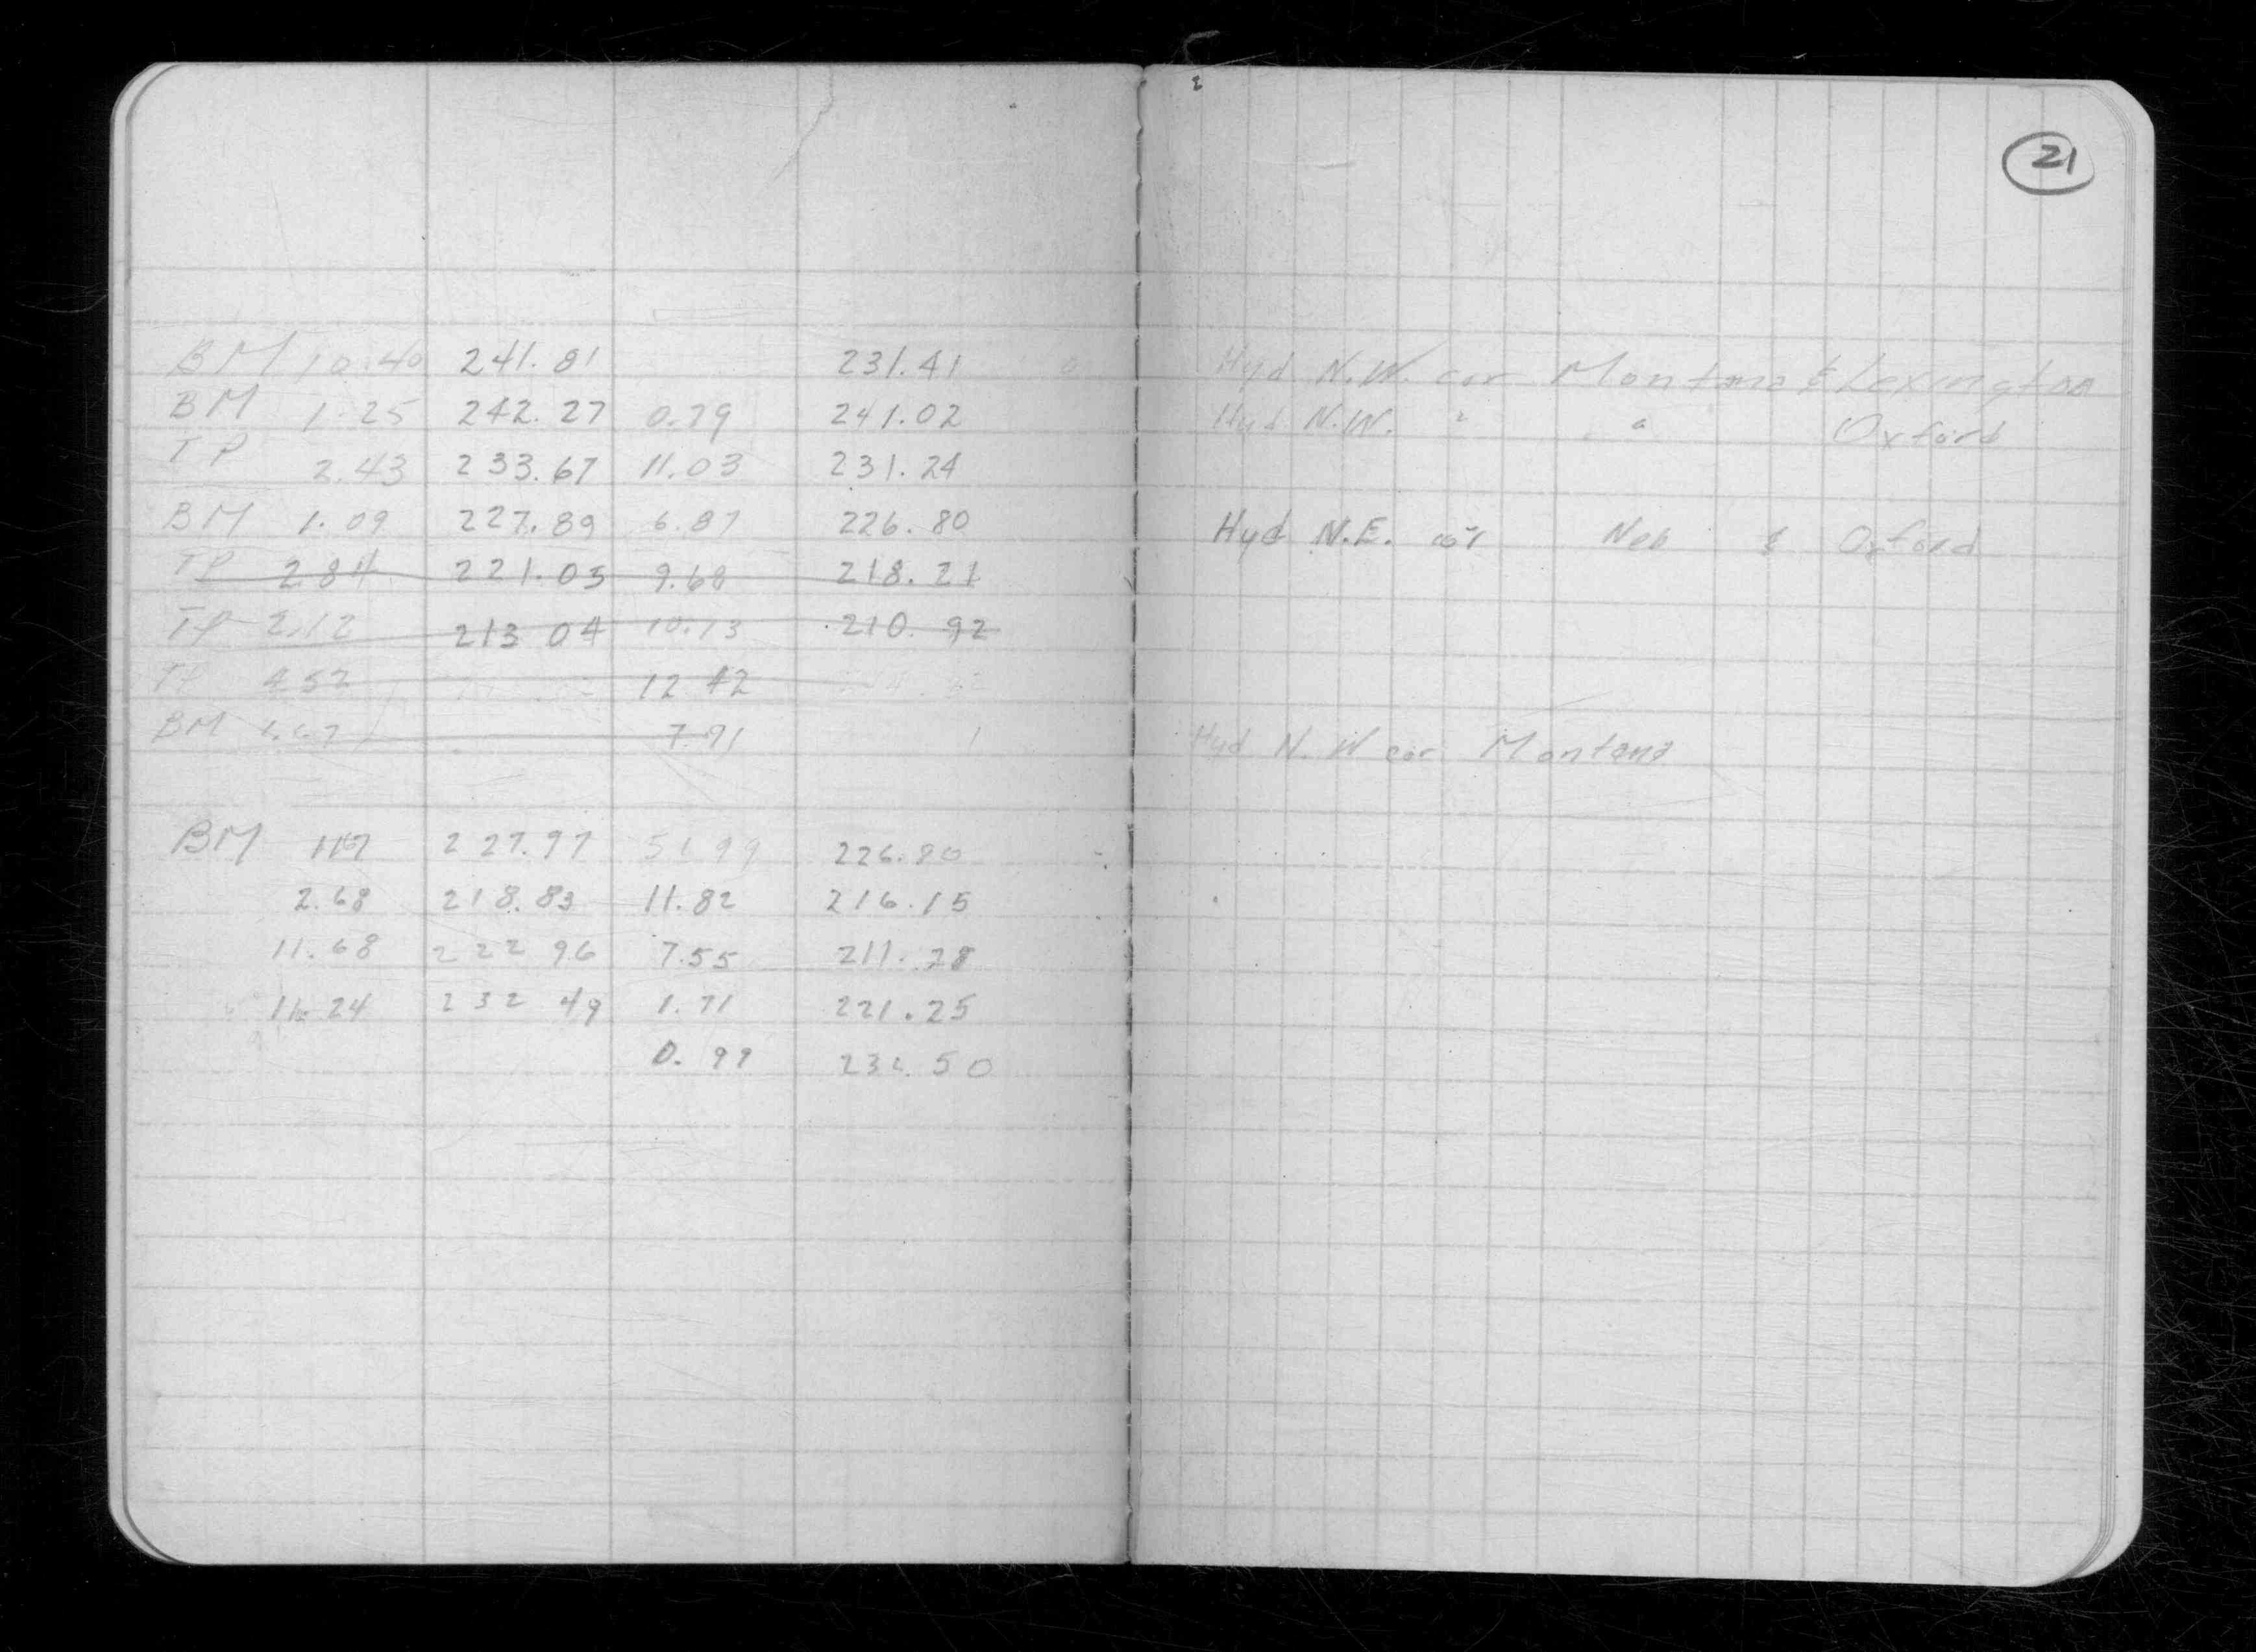 21
BM 10.40 241.81 231.41 Hyd N.W. cor Montana & Lexington
BM 1.25 242.27 0.79 241.02 Hyd N.W. " " Oxford
TP 2.43 233.67 11.03 231.24
BM 1.09 227.89 6.87 226.80 Hyd N.E. cor Neb & Oxford
TP 2.84 221.05 9.68 218.21
TP 2.12 213 04 10.13 210.92
TP 4.52 12.42
BM 7.91 Hyd N.W cor. Montana
BM 227.97 226.80
2.68 218.83 11.82 216.15
11.68 222 96 7.55 211.28
11.24 232 49 1.71 221.25
0.99